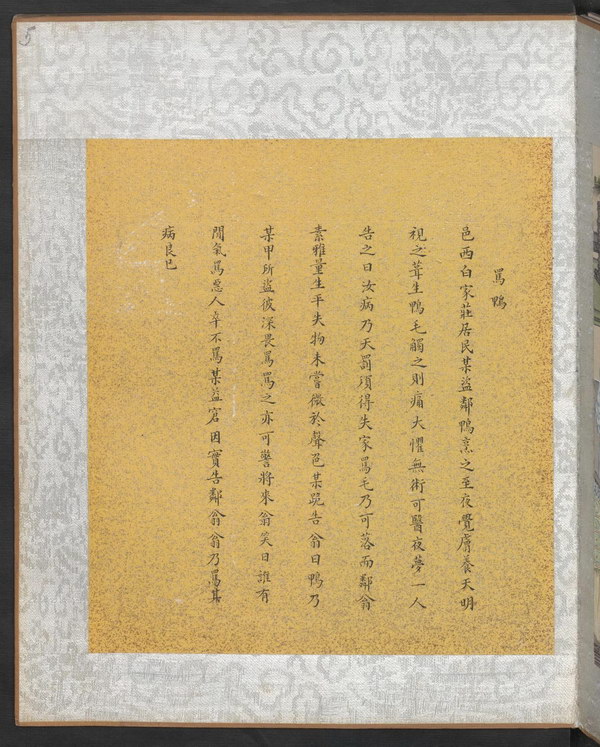 5
罵鴨
邑西白家莊居民某盜鄰鴨烹之至夜覺膚養天明
視之茸生鴨毛觸之則痛大懼無術可醫夜夢一人
告之曰汝病乃天罰須得失家罵毛乃可落而鄰翁
素雅量生平失物未嘗徵於聲色某跪告翁曰鴨乃
某甲所盜彼深畏罵罵之亦可警將來翁笑曰誰有
閒氣罵惡人卒不罵某益窘因實告鄰翁翁乃罵其
病良已